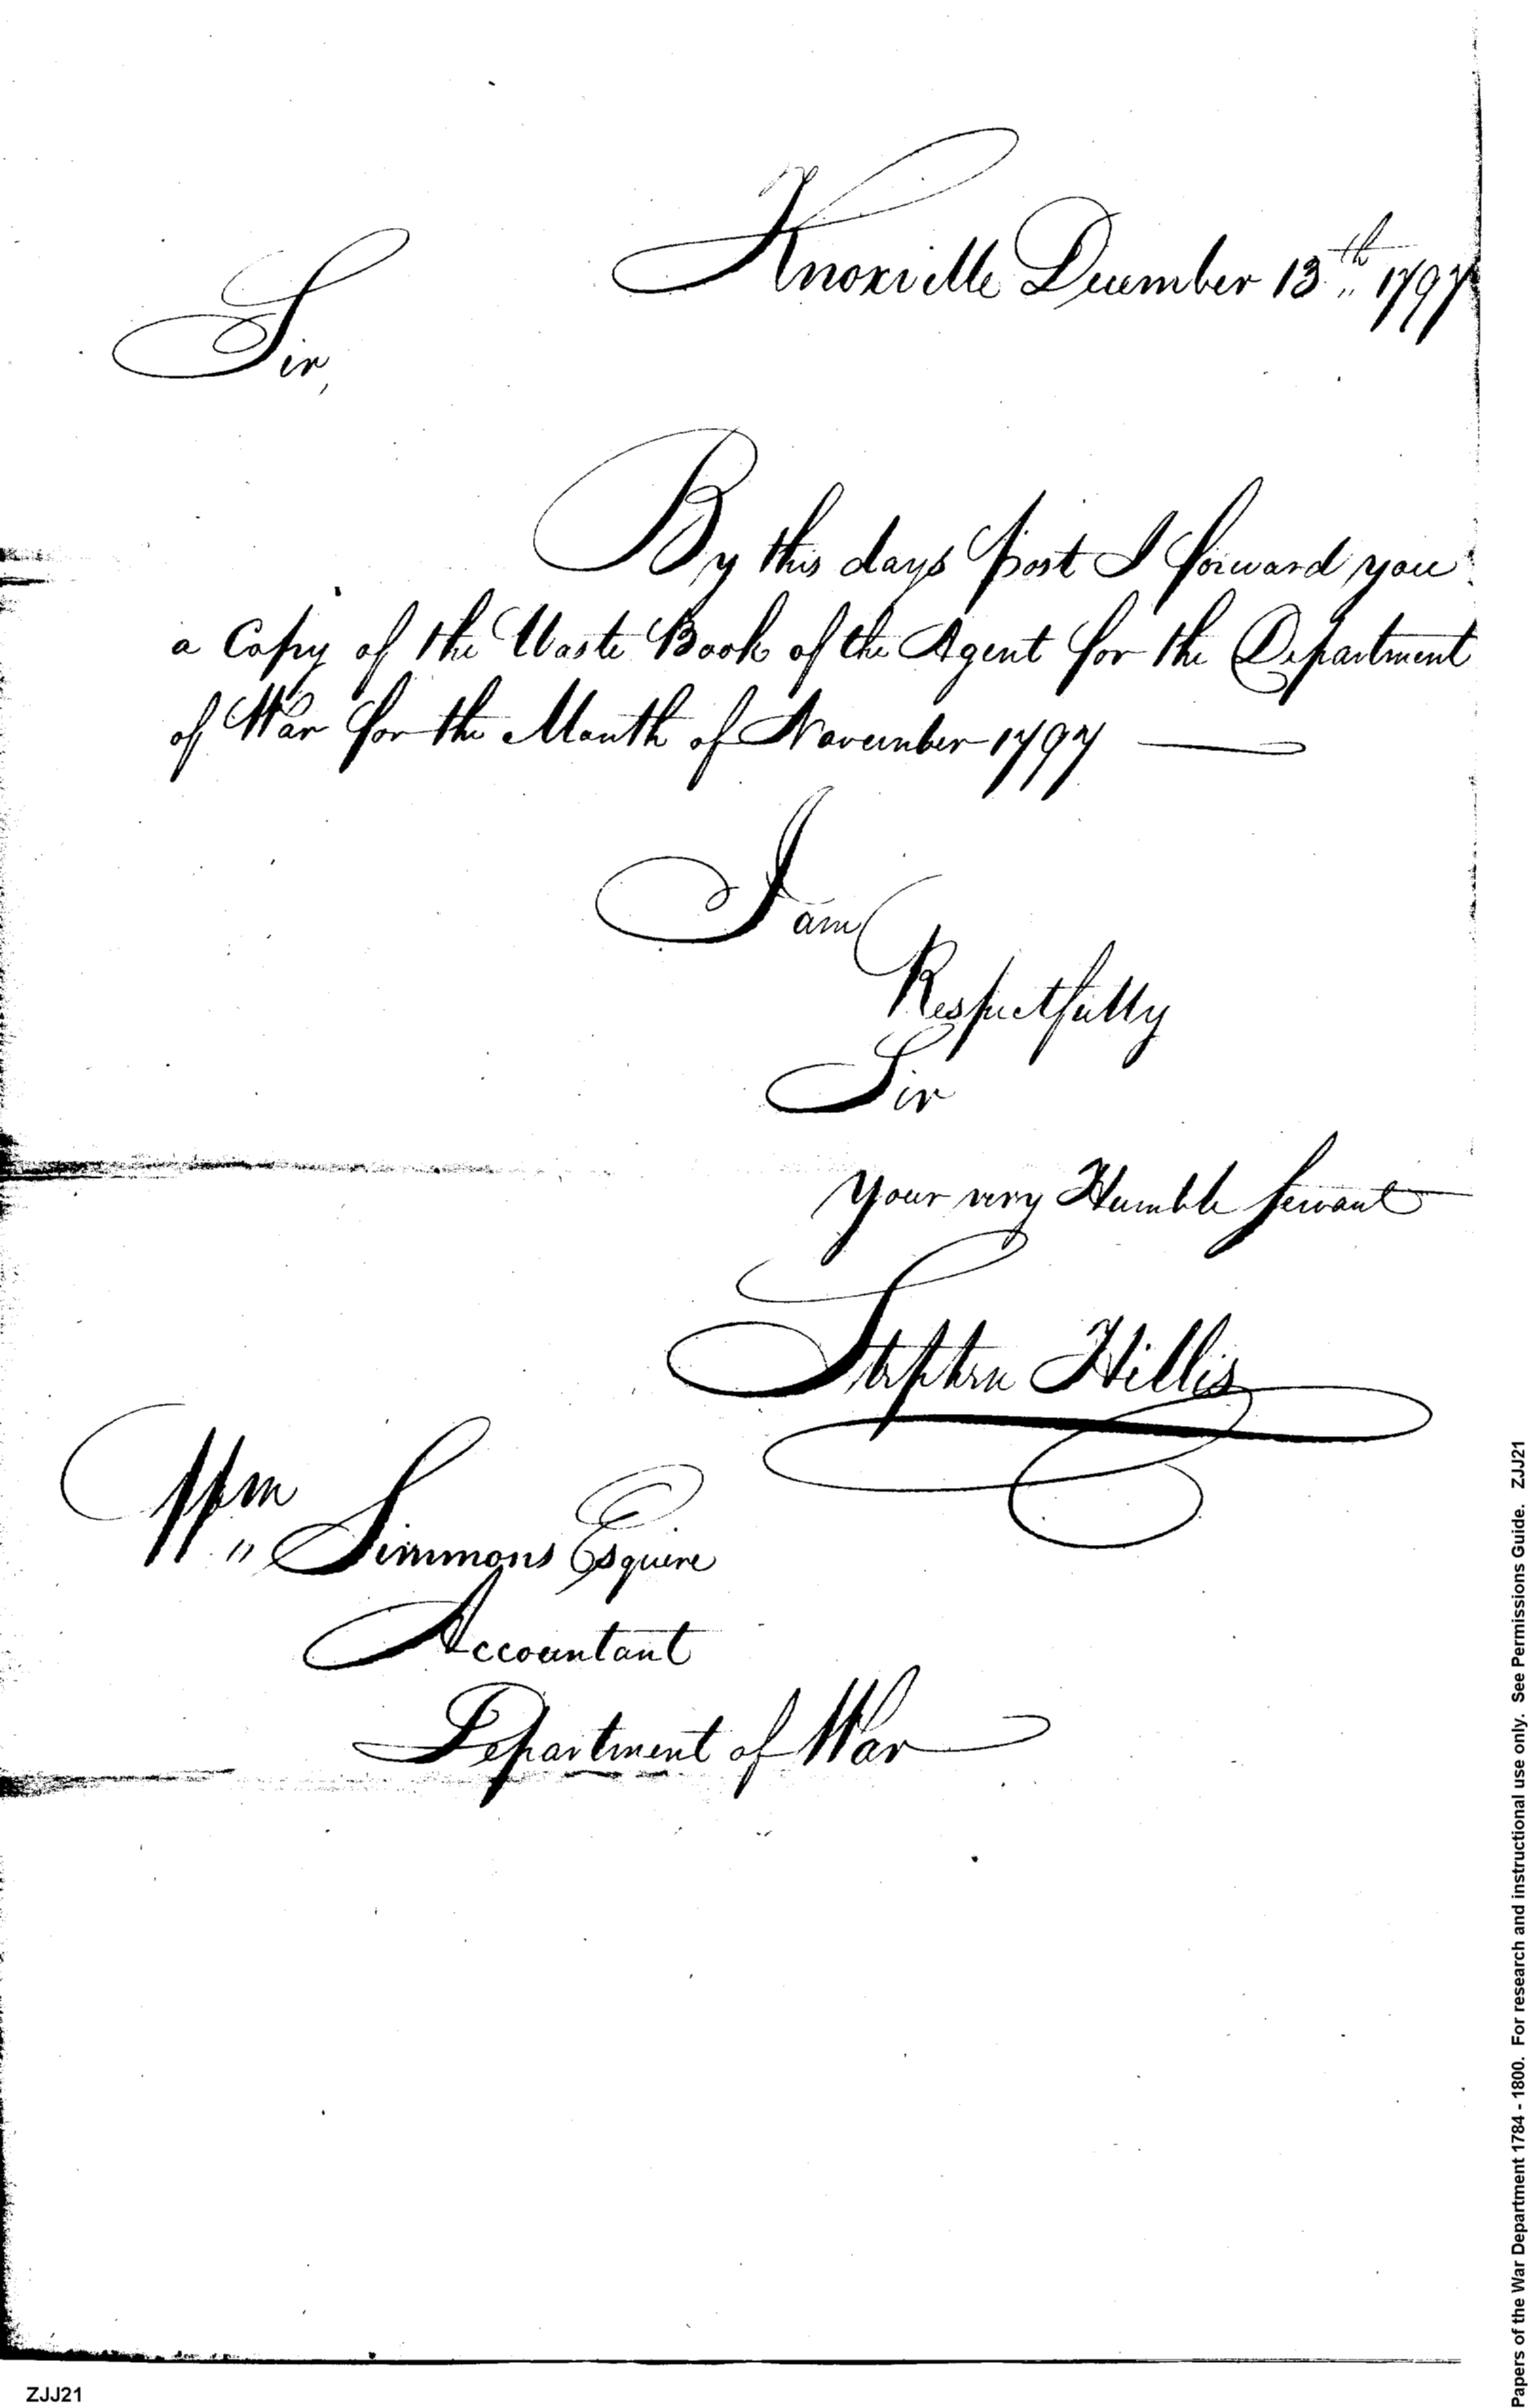 Knoxville December 13th 1797
Sir,
By this days post I forward you
a Copy of the Waste Book of the Agent for the Department
of War for the Month of November 1797
I am
Respectfully
Sir
your very Humble Servant
Stephen Hillis
Wm Simmons Esquire
Accountant
Department of War
Papers of the War Department 1784 - 1800. For research and instructional use only. See Permissions Guide. ZJJ21
ZJJ21